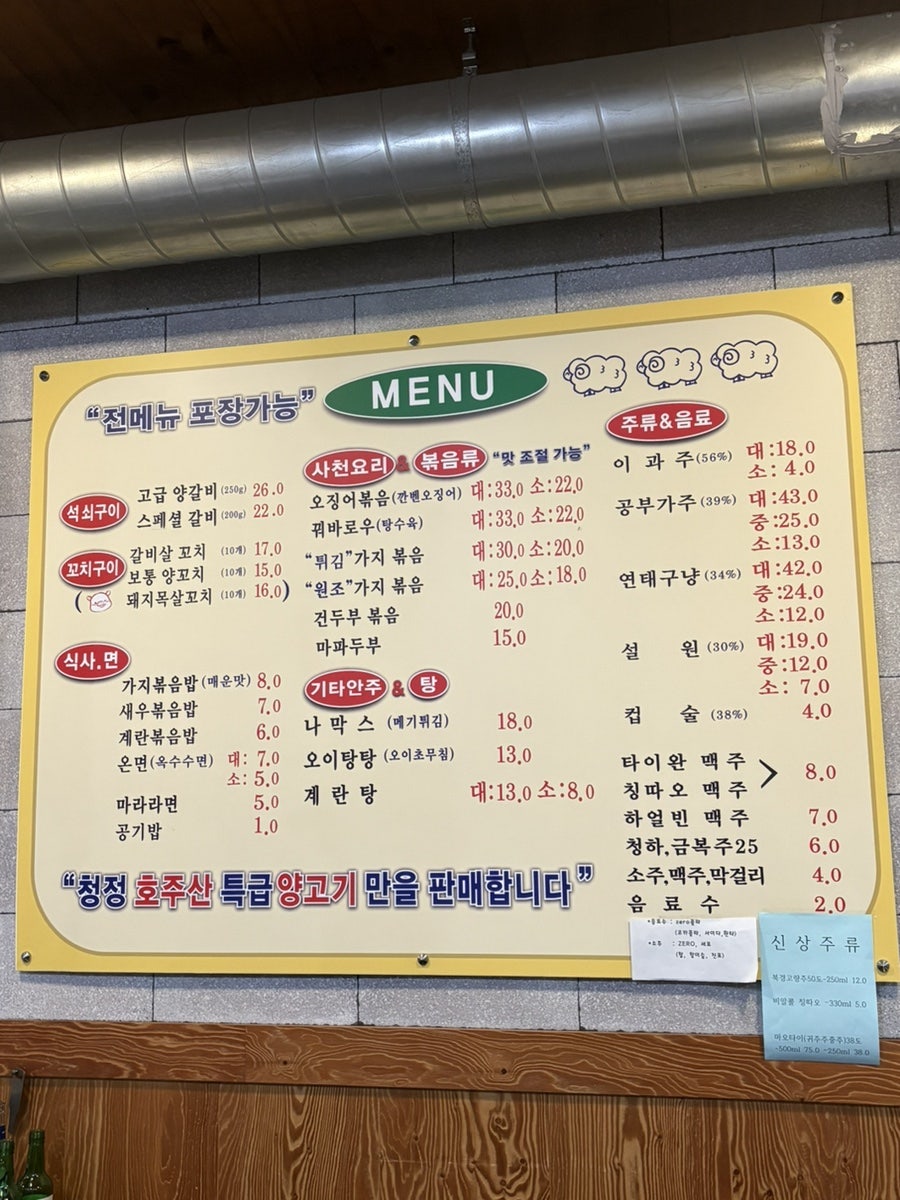 "전메뉴 포장가능"
MENU
석쇠구이
고급 양갈비 (250g) 26.0
스페셜 갈비 (200g) 22.0
꼬치구이
갈비살 꼬치 (10개) 17.0
보통 양꼬치 (10개) 15.0
( 돼지목살꼬치 (10개) 16.0)
식사.면
가지볶음밥(매운맛) 8.0
새우볶음밥 7.0
계란볶음밥 6.0
온면(옥수수면) 대: 7.0
소: 5.0
마라라면 5.0
공기밥 1.0
사천요리 & 볶음류 "맛 조절 가능"
오징어볶음(깐벤오징어) 대:33.0 소:22.0
꿔바로우(탕수육) 대:33.0 소:22.0
"튀김"가지 볶음 대:30.0 소:20.0
"원조"가지 볶음 대:25.0 소:18.0
건두부 볶음 20.0
마파두부 15.0
기타안주 & 탕
나 막 스 (메기튀김) 18.0
오이탕탕 (오이초무침) 13.0
계 란 탕 대:13.0 소:8.0
주류&음료
이 과 주(56%) 대:18.0
소: 4.0
공부가주(39%) 대:43.0
중:25.0
소:13.0
연태구냥(34%) 대:42.0
중:24.0
소:12.0
설 원 (30%) 대:19.0
중:12.0
소: 7.0
컵 술(38%) 4.0
타이완 맥주
칭따오 맥주 > 8.0
하얼빈 맥주 7.0
청하,금복주25 6.0
소주,맥주,막걸리 4.0
음 료 수 2.0
"청정 호주산 특급양고기 만을 판매합니다"
*음료수 : zero콜라
(코카콜라, 사이다,환타)
*소주 : ZERO, 새로
(참, 참이슬, 진로)
신상주류
북경고량주50도-250ml 12.0
비알콜 칭따오 -330ml 5.0
마오타이(귀주주중주)38도
-500ml 75.0 -250ml 38.0